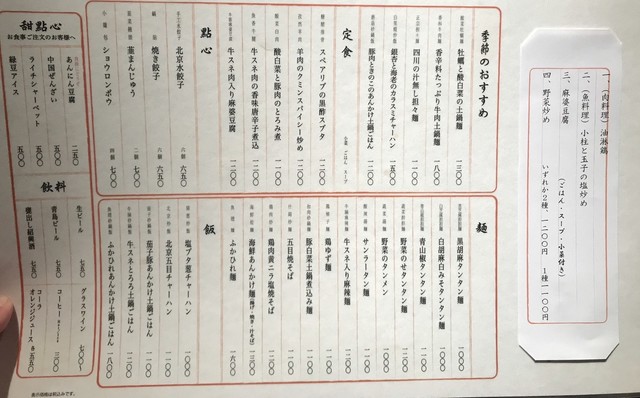 一、(肉料理)油淋鶏
二、(魚料理)小柱と玉子の塩炒め
三、麻婆豆腐
(ごはん・スープ・小菜付き)
四、野菜炒め
いずれか2種、一二〇〇円 1種一一〇〇円
季節のおすすめ
牡蠣と酸白菜の土鍋麺 一三〇〇
香辛料たっぷり牛肉土鍋麺 一八〇〇
四川の汁無し担々麺 一一〇〇
銀杏と海老のカラスミチャーハン 一五〇〇
豚肉ときのこのあんかけ土鍋ごはん 一二〇〇
定食
小菜 ごはん スープ
スペアリブの黒酢スブタ 一二〇〇
羊肉のクミンスパイシー炒め 一二〇〇
酸白菜と豚肉のとろみ煮 一一〇〇
牛スネ肉の香味唐辛子煮込 一二〇〇
牛スネ肉入り麻婆豆腐 一二〇〇
點心
北京水餃子 六個 六五〇
焼き餃子 六個 六五〇
韮まんじゅう 二個 五〇〇
ショウロンポウ 四個 七〇〇
甜點心
お食事ご注文のお客様へ
あんにん豆腐 二五〇
中国ぜんざい 五〇〇
ライチシャーベット 五〇〇
緑豆アイス 五〇〇
麺
黒胡麻タンタン麺 一〇〇〇
白胡麻白みそタンタン麺 一〇〇〇
青山椒タンタン麺 一一〇〇
野菜のせタンタン麺 一二〇〇
野菜のタンメン 一〇〇〇
サンラータン麺 一〇〇〇
牛スネ入り麻辣麺 一二〇〇
鶏ゆず麺 一〇〇〇
豚白菜土鍋煮込み麺 一二〇〇
五目焼そば 一二〇〇
鶏肉黄ニラ塩焼そば 一二〇〇
海鮮あんかけ麺(揚げ・焼き・汁そば) 一三〇〇
ふかひれ麺 一六〇〇
飯
塩ブタ葱チャーハン 一〇〇〇
北京五目チャーハン 一一〇〇
茄子豚あんかけ土鍋ごはん 一一〇〇
牛スネとろろ土鍋ごはん 一二〇〇
ふかひれあんかけ土鍋ごはん 一八〇〇
飲料
生ビール 七五〇
青島ビール 七五〇
甕出し紹興酒 七五〇
グラスワイン 七〇〇〜
コーヒー 三〇〇
コーラ
オレンジジュース 各五五〇
表示価格は税込みです。